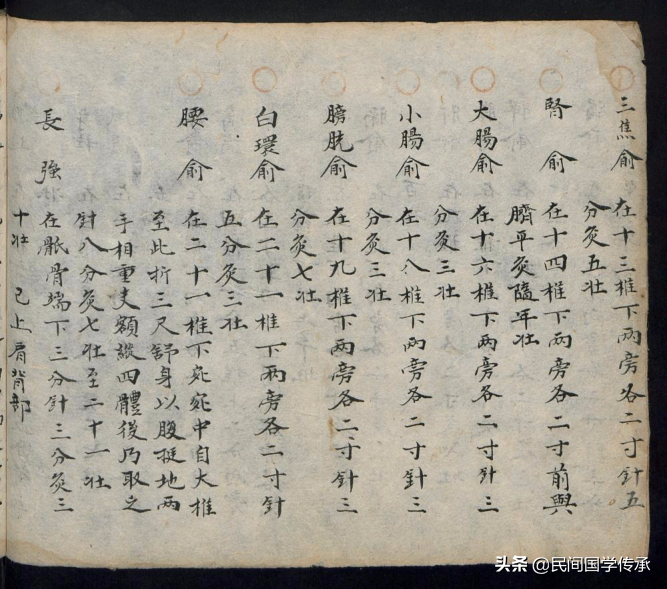 三焦俞 在十三椎下两旁各二寸針五
分灸五壮
腎俞 在十四椎下两旁各二寸前與
臍平灸隨年壮
大腸俞 在十六椎下两旁各二寸針三
分灸三壮
小腸俞 在十八椎下两旁各二寸針三
分灸三壮
膀胱俞 在十九椎下两旁各二寸針三
分灸七壮
白環俞 在二十一椎下两旁各二寸針
五分灸三壮
腰俞 在二十一椎下宛宛中自大椎
至此折三尺舒身以腹挺地两
手相重支額縱四體後乃取之
針八分灸七壮至二十一壮
長強 在骶骨端下三分針三分灸三
十壮 已上肩背部
头条 @民间国学传承